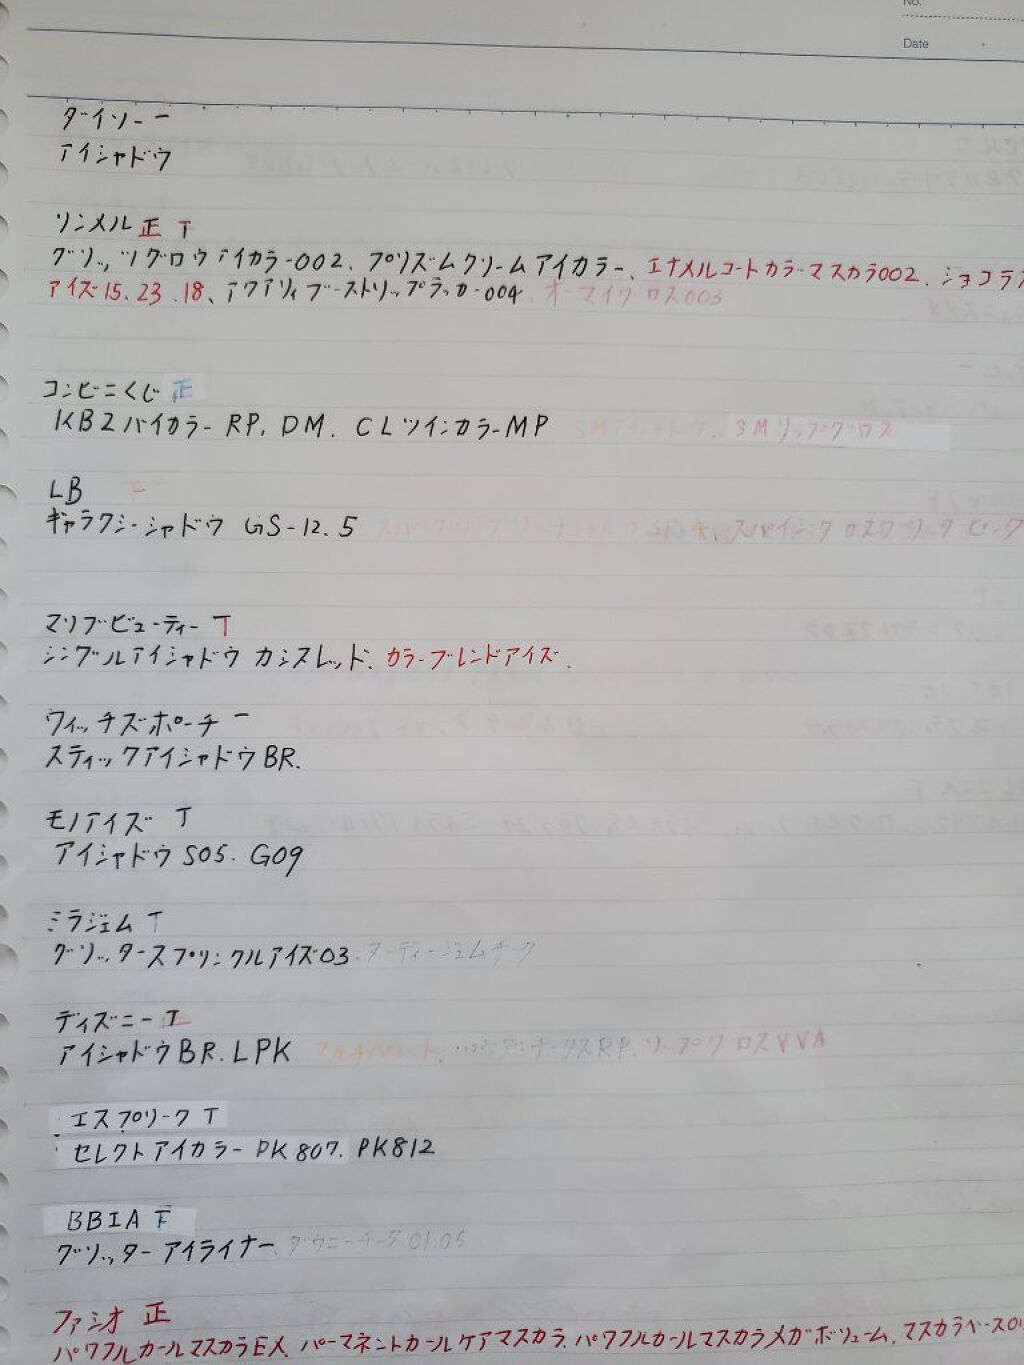 No.
Date
ダイソー 一
アイシャドウ
リンメル 正 T
グリッツグロウアイカラー002、プリズムクリームアイカラー、エナメルコートカラーマスカラ002、ショコラス
アイズ15.23.18、アクアリィブーストリップラッカー004、オーマイグロス003
コンビニくじ 正
KB2バイカラーRP. DM. CLツインカラーMP SMアイシャドウ、SMリップグロス
LB
ギャラクシーシャドウ GS-12.5
マリブビューティー T
シングルアイシャドウ カシスレッド、カラーブレンドアイズ、
ウィッチズポーチ 一
スティックアイシャドウBR.
モノアイズ T
アイシャドウS05. G09
ミラジェム T
グリッタースプリンクルアイズ03、ターティージェムチーク
ディズニー 正
アイシャドウBR. LPK マルチパレット、リップグロスVVA
エスプリーク T
セレクトアイカラーPK807. PK812
BBIA 下
グリッターアイライナー、ダウニーチーク01.05
ファシオ 正
パワフルカールマスカラEX、パーマネントカールケアマスカラ、パワフルカールマスカラメガボリューム、マスカラベース01